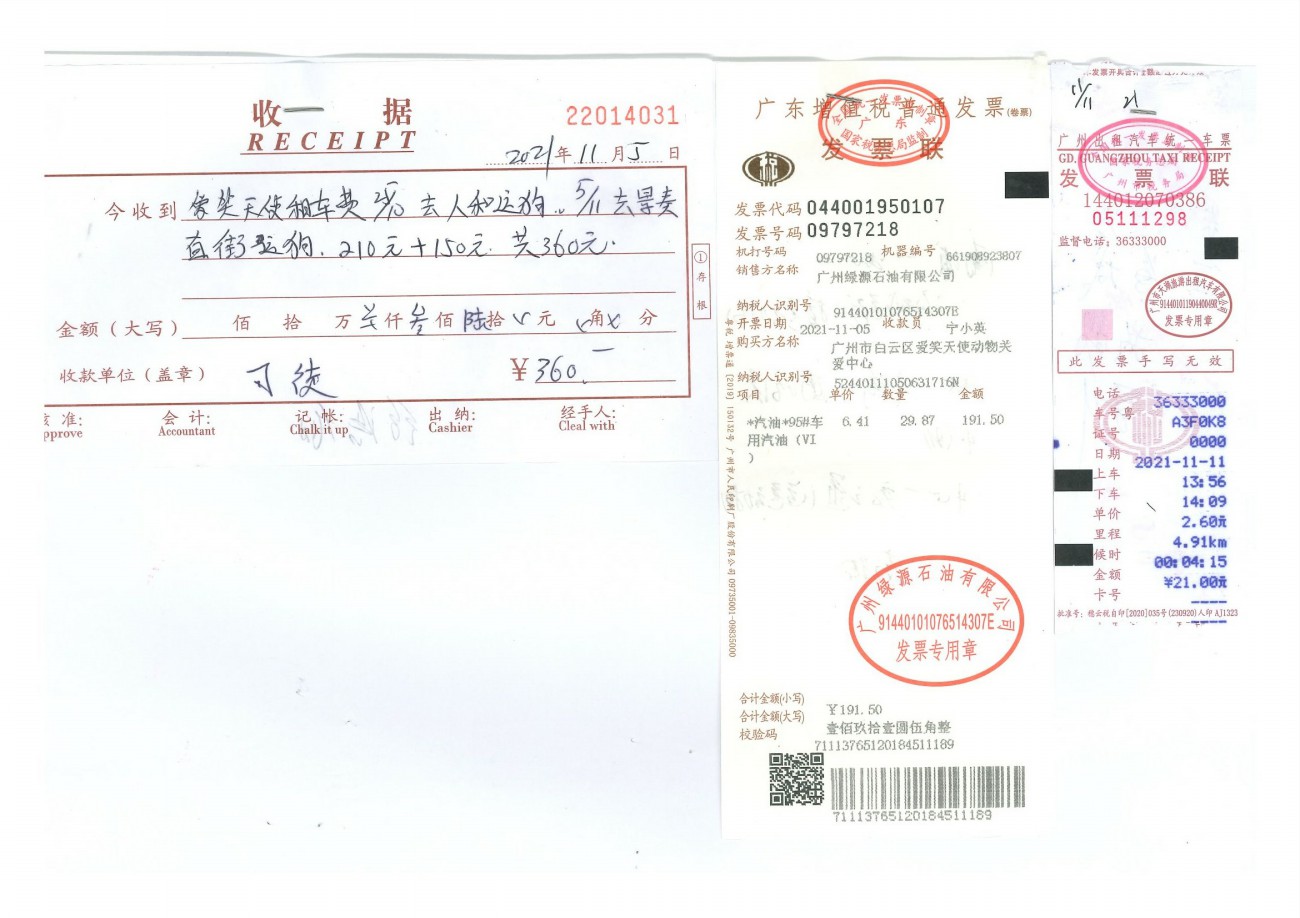 收 据
RECEIPT
22014031
2021年 11 月 5 日
今收到 爱笑天使租车费 去人和运狗.. 5/11去景泰
直街运狗. 210元+150元. 共360元.
① 存根
金额（大写） 佰 拾 万 仟 叁佰 陆拾 元 角 分
收款单位（盖章）
¥360.
核准: 会计: 记帐: 出纳: 经手人:
pprove Accountant Chalk it up Cashier Cleal with
广东增值税普通发票(卷票)
发票联
全国统一发票监制章
广东
国家税务总局监制
税
发票代码 044001950107
发票号码 09797218
机打号码 09797218 机器编号 661908923807
销售方名称 广州绿源石油有限公司
纳税人识别号 91440101076514307E
开票日期 2021-11-05 收款员 宁小英
购买方名称 广州市白云区爱笑天使动物关
爱中心
纳税人识别号 52440111050631716N
项目 单价 数量 金额
*汽油*95#车 6.41 29.87 191.50
用汽油（VI
）
广州绿源石油有限公司
91440101076514307E
发票专用章
合计金额(小写) ¥191.50
合计金额(大写) 壹佰玖拾壹圆伍角整
校验码 71113765120184511189
71113765120184511189
11/11 21
广州出租汽车统一车票
GD. GUANGZHOU TAXI RECEIPT
发票联
广州市税务局
144012070386
05111298
监督电话: 36333000
发票专用章
此发票手写无效
电话 36333000
车号粤 A3F0K8
证号 0000
日期 2021-11-11
上车 13:56
下车 14:09
单价 2.60元
里程 4.91km
候时 00:04:15
金额 ¥21.00元
卡号 ----
批准号: 穗云税自印[2020]035号(230920)人印AJ1323